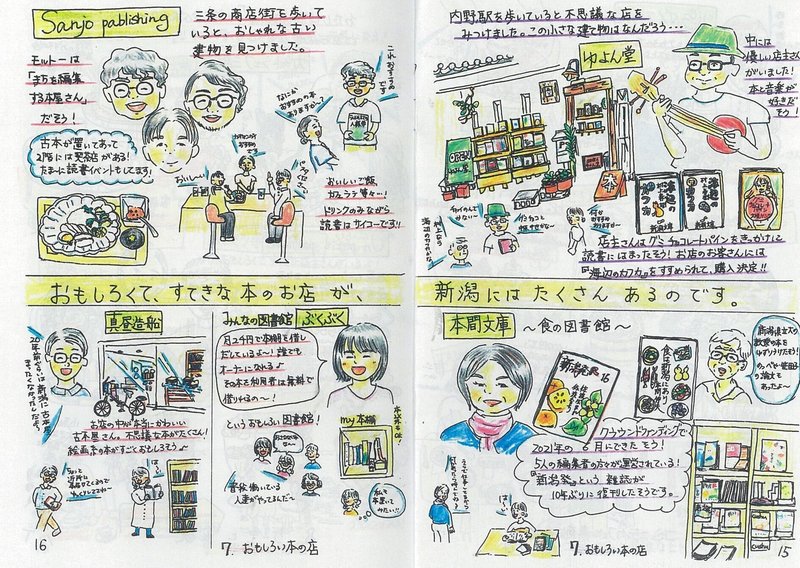 Sanjo pablishing
三条の商店街を歩いて
いると、おしゃれな古い
建物を見つけました。
モルトーは
「まちを編集
する本屋さん」
だそう!
これおすすめ
です
なにか
おすすめの本
ありますか〜?
古本が置いてあって
2階には喫茶店がある!
たまに読書イベントもしてます!
おいしい〜
おいしいご飯、
カフェラテ等々…!
ドリンクのみながら
読書はサイコーです!!
内野駅を歩いていると不思議な店を
みつけました。この小さな建て物はなんだろう・・・
ゆよん堂
中には
優しい店主さん
がいました!
本と音楽が
好きだ
そう!
OPEN
本
海辺の
カフカ
店主さんはグミチョコレートパインをきっかけに
読書にはまったそう!お店のお客さんには
『海辺のカフカ』をすすめられて、購入決定!!
おもしろくて、すてきな本のお店が、
新潟にはたくさんあるのです。
真昼造船
20年前くらいは新潟に古本屋
まったくなかったんだよ〜
お店の中が本当にかわいい
古本屋さん。不思議な本がたくさん!
絵画系の本がすごくおもしろそう♪
みんなの図書館 ぶくぶく
月2千円で本棚を借り
だしているよ〜!誰でも
オーナーになれるよ♪
その本を利用者は無料で
借りれるの〜!
というおもしろい図書館!
my本棚
普段働いている
人達がやってるんだ〜
私も
本置いて
みたい!!
16
7. おもしろい本の店
本間文庫
〜食の図書館〜
新潟発
16
食は新潟にあり
新潟県立大の
教授の本を
ゆずりうけたそう!
クラウンドファンディングで
2021年の6月にできたそう!
5人の編集者の方々が運営されている!
『新潟発』という雑誌が
10年ぶりに復刊したそうです。
7. おもしろい本の店
15